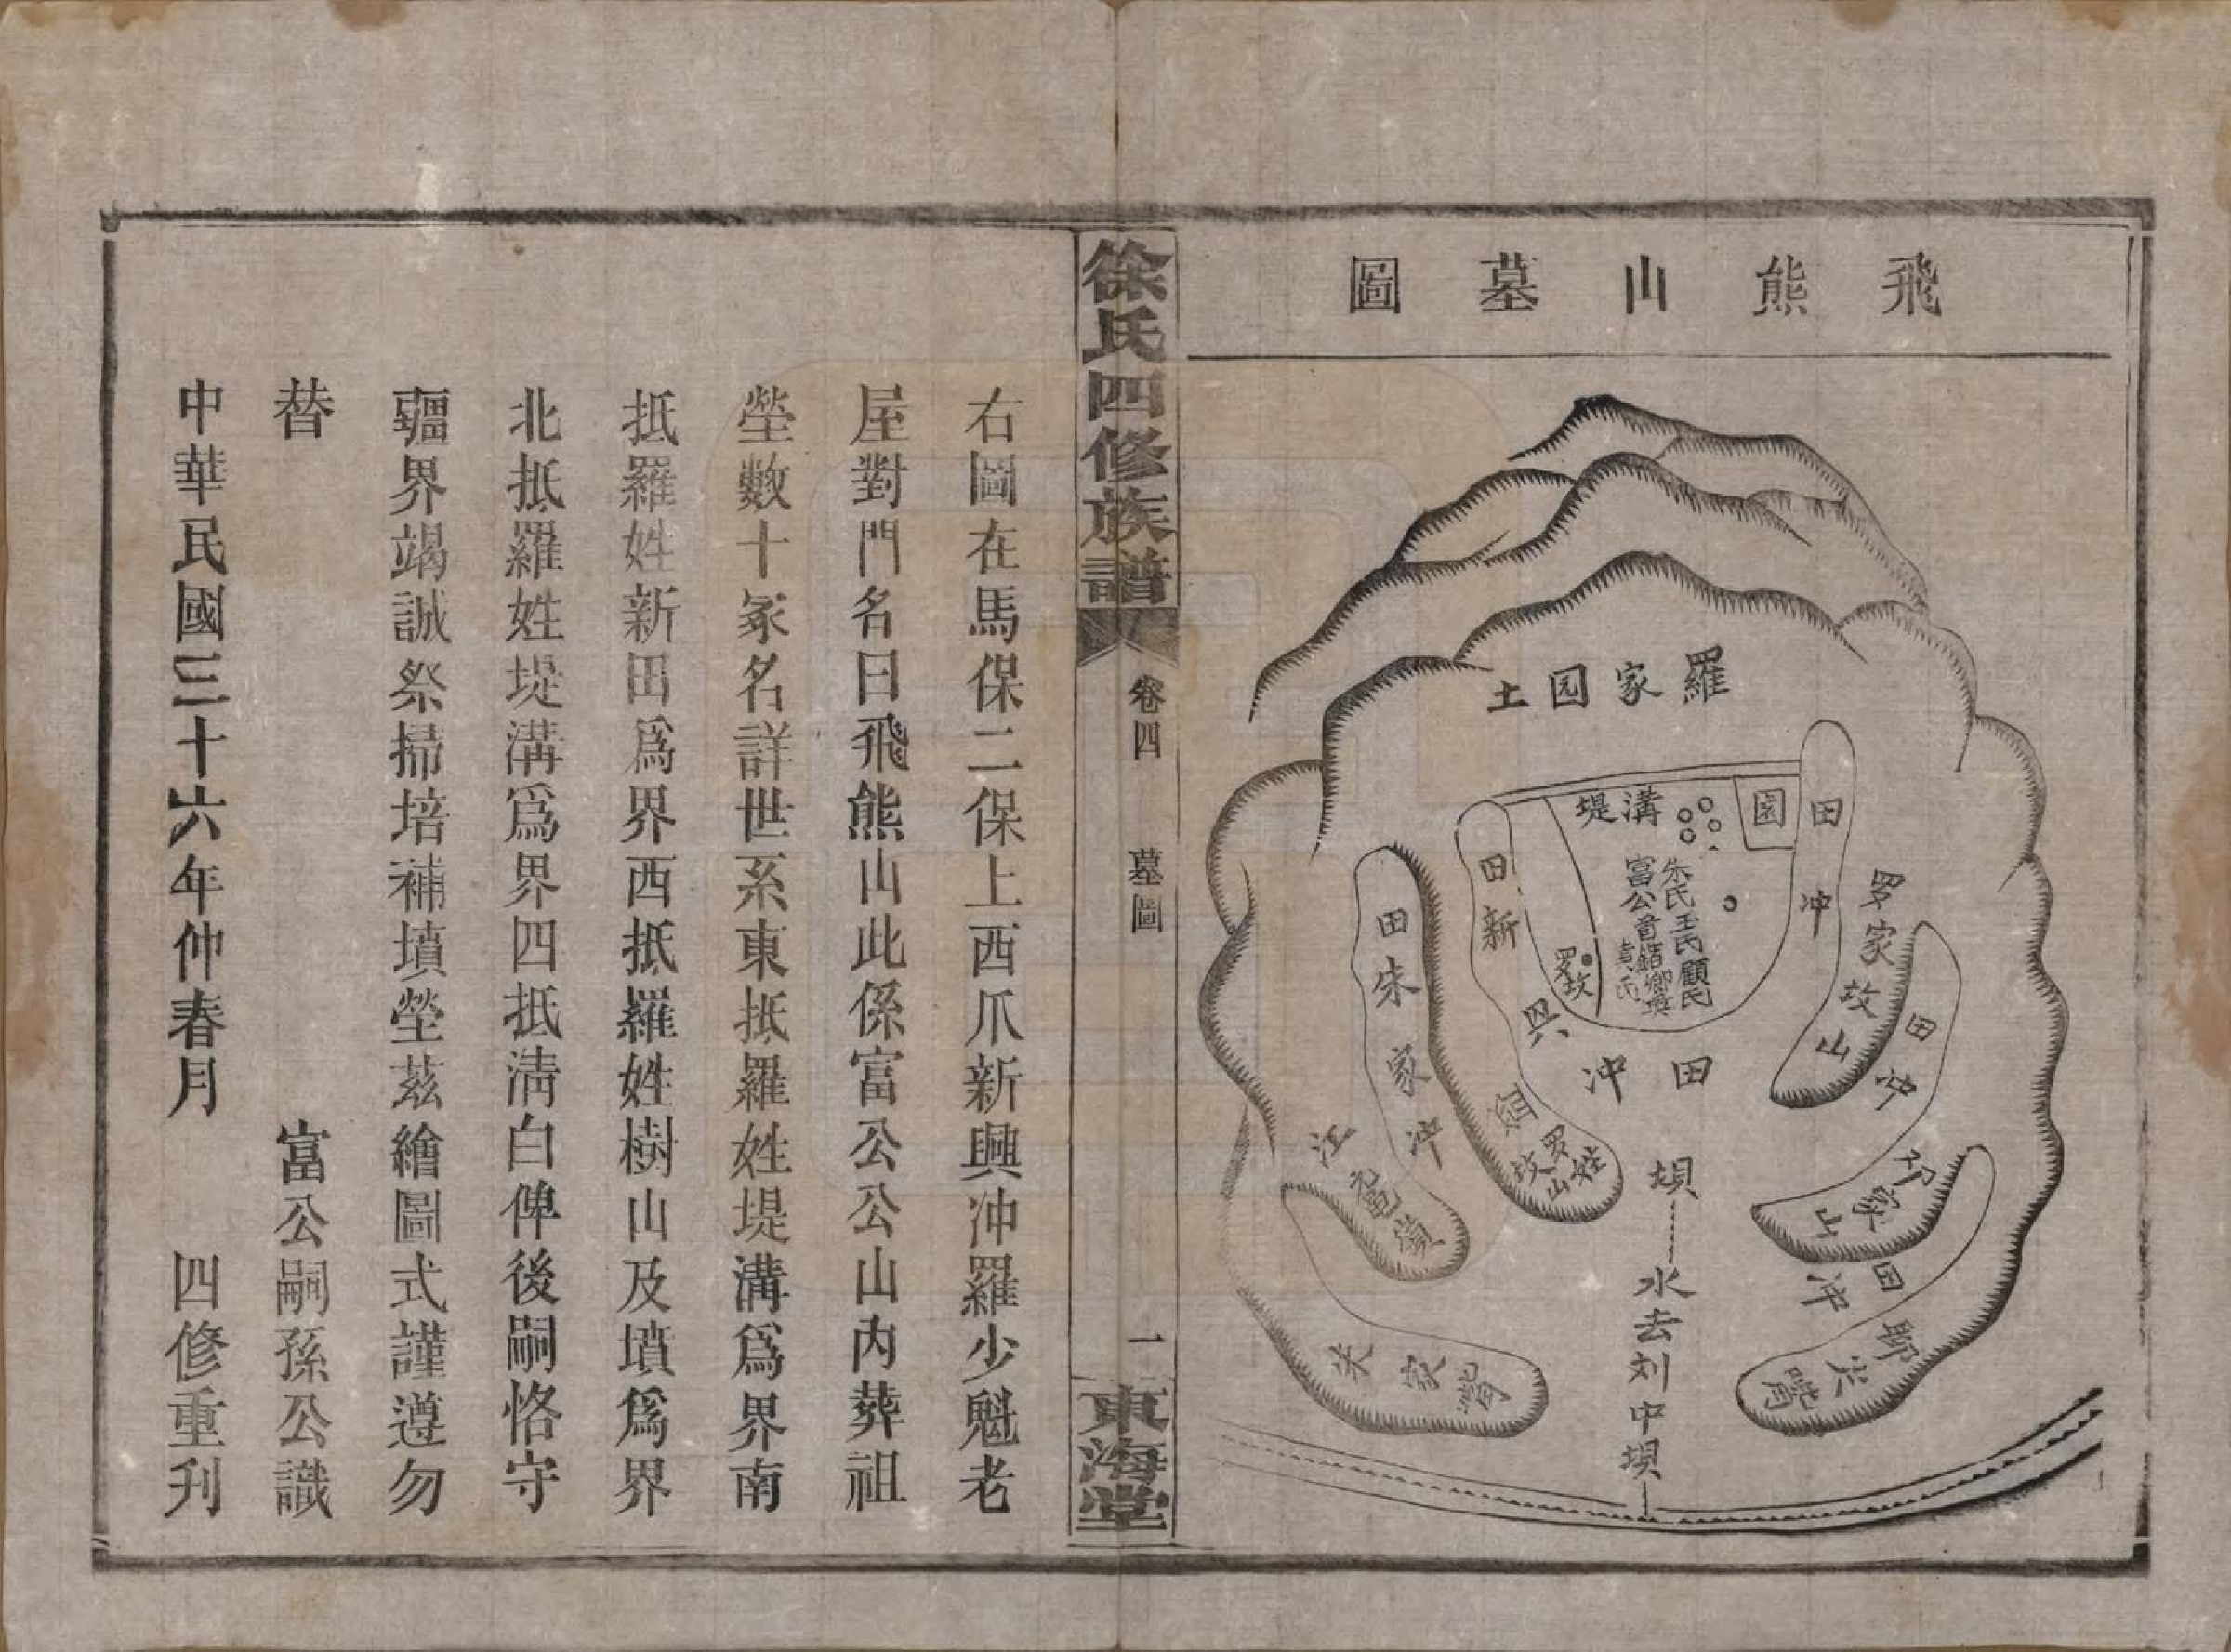 飛熊山墓圖
羅家园土
溝堤
園
田冲
朱氏
富公
王氏
顧氏
罗坟
田新
罗家坟山
田冲
田朱家冲
田冲
罗姓坟山
邓家山
田冲
坝
水去刘中坝
徐氏四修族譜
卷四
墓圖
一
東海堂
右圖在馬保二保上西爪新興冲羅少魁老
屋對門名曰飛熊山此係富公公山內葬祖
塋數十冢名詳世系東抵羅姓堤溝爲界南
抵羅姓新田爲界西抵羅姓樹山及墳爲界
北抵羅姓堤溝爲界四抵淸白俾後嗣恪守
疆界竭誠祭掃培補墳塋茲繪圖式謹遵勿
替
富公嗣孫公識
中華民國三十六年仲春月 四修重刊